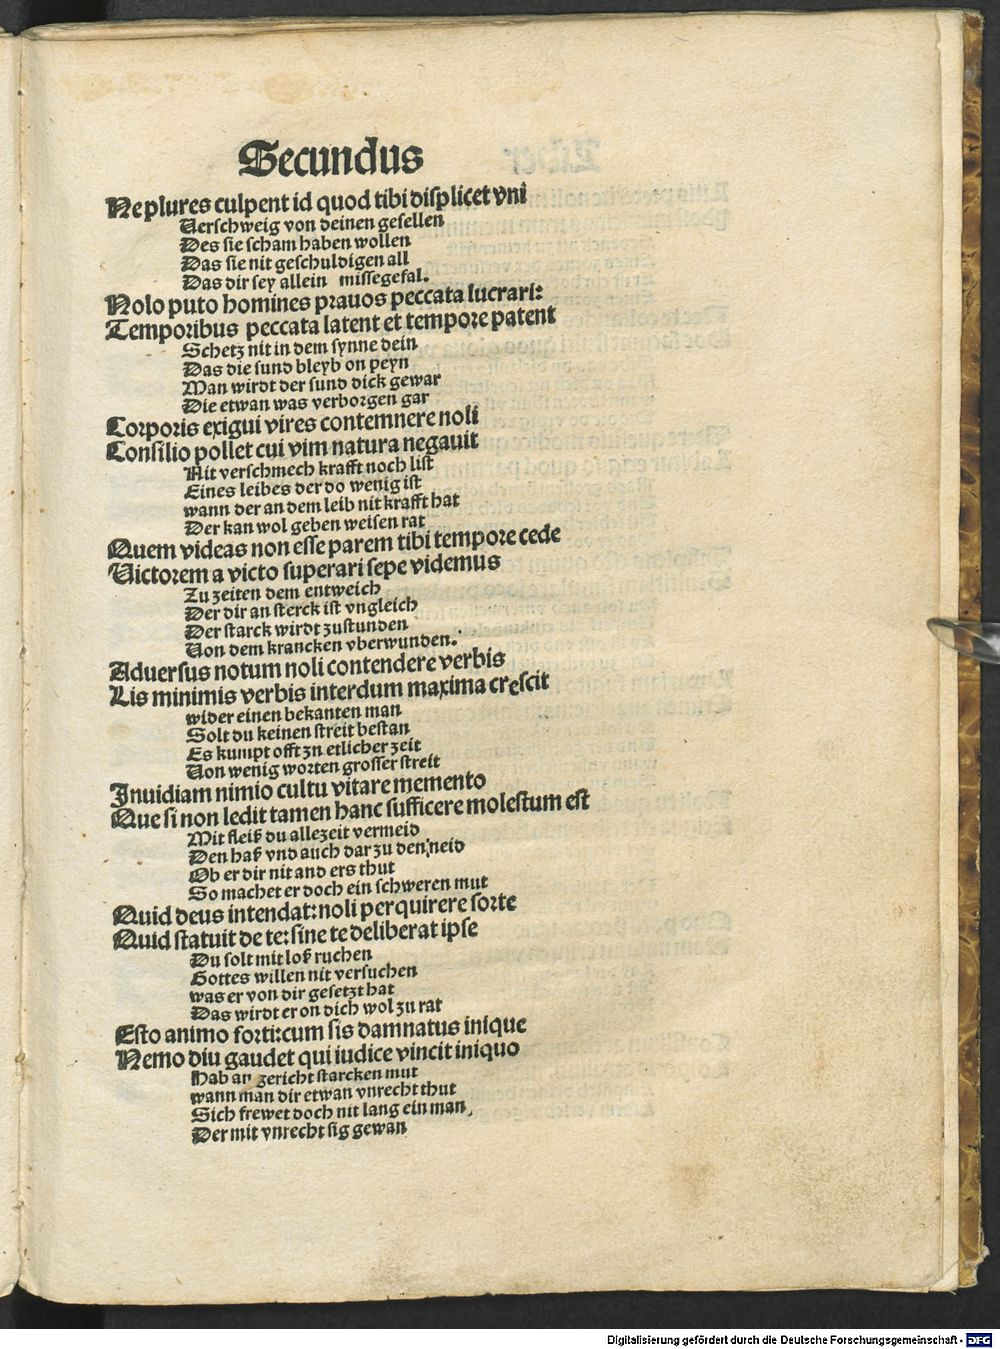 Secundus
Ne plures culpent id quod tibi displicet vni
Uerschweig von deinen gesellen
Des sie scham haben wollen
Das sie nit geschuldigen all
Das dir sey allein missegefal.
Nolo puto homines prauos peccata lucrari:
Temporibus peccata latent et tempore patent
Schetz nit in dem synne dein
Das die sund bleyb on peyn
Man wirdt der sund dick gewar
Die etwan was verborgen gar
Corporis exigui vires contemnere noli
Consilio pollet cui vim natura negauit
Nit verschmech krafft noch list
Eines leibes der do wenig ist
wann der an dem leib nit krafft hat
Der kan wol geben weisen rat
Quem videas non esse parem tibi tempore cede
Uictorem a victo superari sepe videmus
Zu zeiten dem entweich
Der dir an sterck ist vngleich
Der starck wirdt zustunden
Uon dem krancken vberwunden.
Aduersus notum noli contendere verbis
Lis minimis verbis interdum maxima crescit
wider einen bekanten man
Solt du keinen streit bestan
Es kumpt offt zn etlicher zeit
Uon wenig worten grosser streit
Inuidiam nimio cultu vitare memento
Que si non ledit tamen hanc sufficere molestum est
Mit fleiß du allezeit vermeid
Den haß vnd auch dar zu den neid
Ob er dir nit and ers thut
So machet er doch ein schweren mut
Quid deus intendat: noli perquirere sorte
Quid statuit de te: sine te deliberat ipse
Du solt mit loß ruchen
Gottes willen nit versuchen
was er von dir gesetzt hat
Das wirdt er on dich wol zu rat
Esto animo forti: cum sis damnatus inique
Nemo diu gaudet qui iudice vincit iniquo
Hab an gericht starcken mut
wann man dir etwan vnrecht thut
Sich frewet doch nit lang ein man
Der mit vnrecht sig gewan
Digitalisierung gefördert durch die Deutsche Forschungsgemeinschaft - DFG